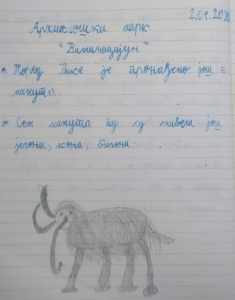 2.04.20
Археолошки парк
"Виминацијум"
* Поред Вике је пронађено још 5
мамута.
* Сем мамута ту су живели још
јелени, коњи, бизони